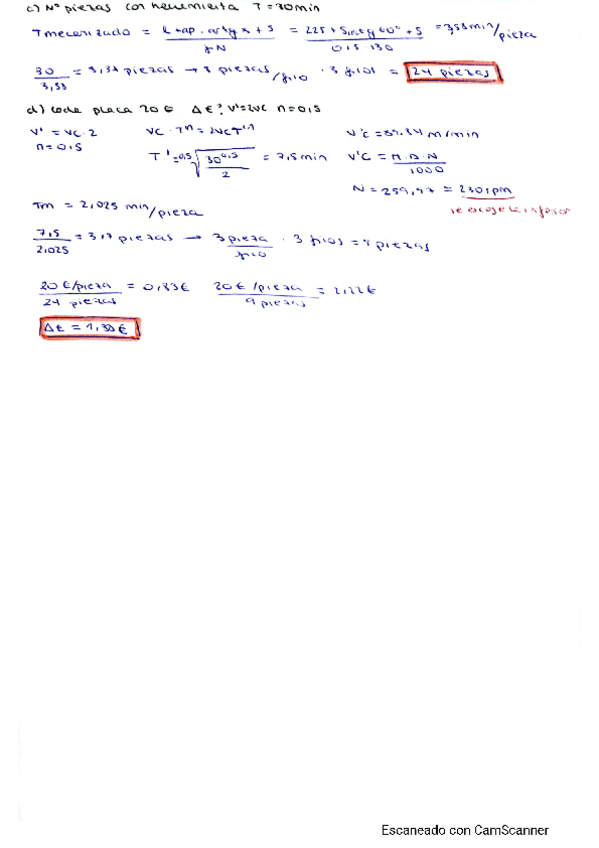 c) Nº piezas con herramienta T = 30min
Tmecanizado = l + ap. cotg x + 5 / f·N = 225 + 5 cotg 60° + 5 / 0,5 · 130 = 3,53 min/pieza
30 / 3,53 = 8,37 piezas → 8 piezas/filo · 3 filos = 24 piezas
d) placa 20 € Δ€? V'=2VC n=0,5
V' = VC · 2 VC · Tⁿ = 2VC T'ⁿ V'c = 57,14 m/min
n = 0,5 T' = 0,5√(30^0,5 / 2) = 7,5 min V'C = π · D · N / 1000
N = 259,97 ≈ 230 rpm
se escoge la inferior
Tm = 2,025 min/pieza
7,5 / 2,025 = 3,7 piezas → 3 pieza/filo · 3 filos = 9 piezas
20 €/pieza / 24 piezas = 0,83 € 20 €/pieza / 9 piezas = 2,22 €
Δ€ = 1,39 €
Escaneado con CamScanner